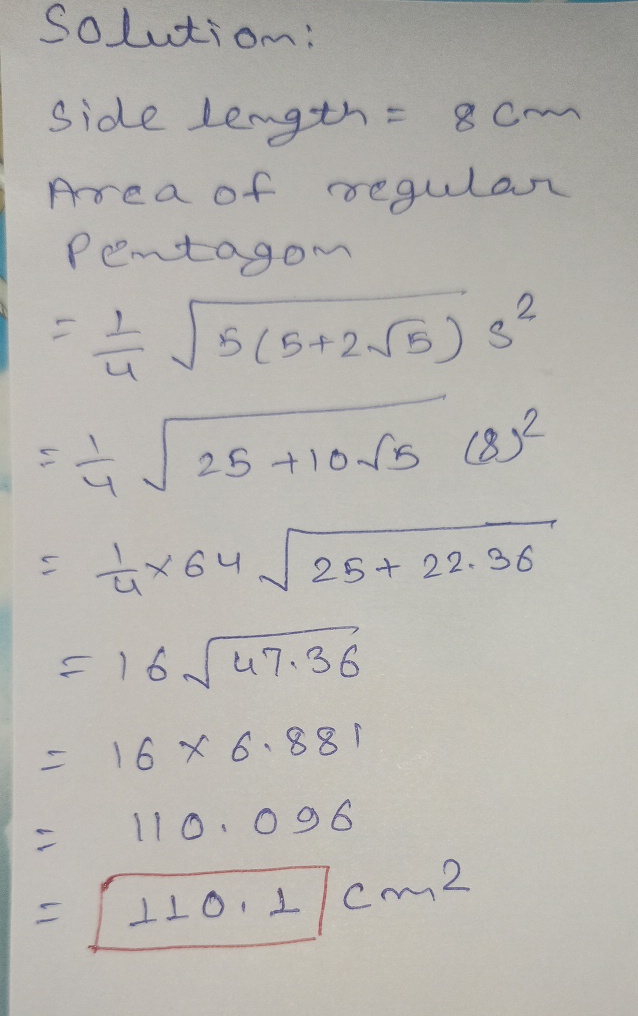 Solution:
Side length = 8 cm
Area of regular
Pentagon
= 1/4 √5(5+2√5) s²
= 1/4 √25 + 10√5 (8)²
= 1/4 × 64 √25 + 22.36
= 16 √47.36
= 16 × 6.881
= 110.096
= 110.1 cm²